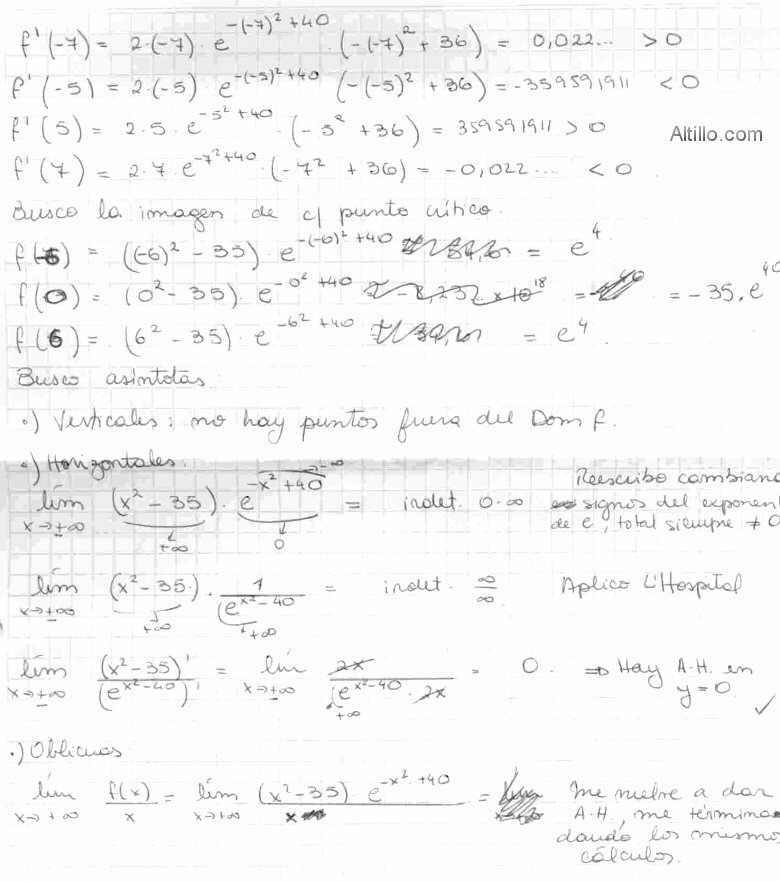 f'(-7) = 2·(-7)·e^{-(-7)²+40}·(-(-7)²+36) = 0,022... >0
f'(-5) = 2·(-5)·e^{-(-5)²+40} (-(-5)²+36) = -359591911 <0
f'(5) = 2·5·e^{-5²+40}·(-5²+36) = 359591911 >0
Altillo.com
f'(7) = 2·7·e^{-7²+40}·(-7²+36) = -0,022... <0
Busco la imagen de c/ punto crítico.
f(-6) = ((-6)²-35)·e^{-(-6)²+40} = e^4
f(0) = (0²-35)·e^{-0²+40} = = -35.e^{40}
f(6) = (6²-35)·e^{-6²+40} = e^4.
Busco asíntotas
·) Verticales: no hay puntos fuera del Dom f.
·) Horizontales:
lím x→±∞ (x²-35)·e^{-x²+40} = indet. 0·∞
+∞ 0 →-∞
Reescribo cambiando
signos del exponen
de e, total siempre ≠0
lím x→±∞ (x²-35)·1/(e^{x²-40}) = indet. ∞/∞ Aplico L'Hospital
+∞ +∞
lím x→±∞ (x²-35)'/(e^{x²-40})' = lím x→±∞ 2x/(e^{x²-40}·2x) = 0. ⇒ Hay A.H. en
y=0 ✓
+∞
·) Oblicuas
lím x→+∞ f(x)/x = lím x→+∞ (x²-35) e^{-x²+40}/x =
me vuelve a dar
A.H., me termina
dando los mismos
cálculos.